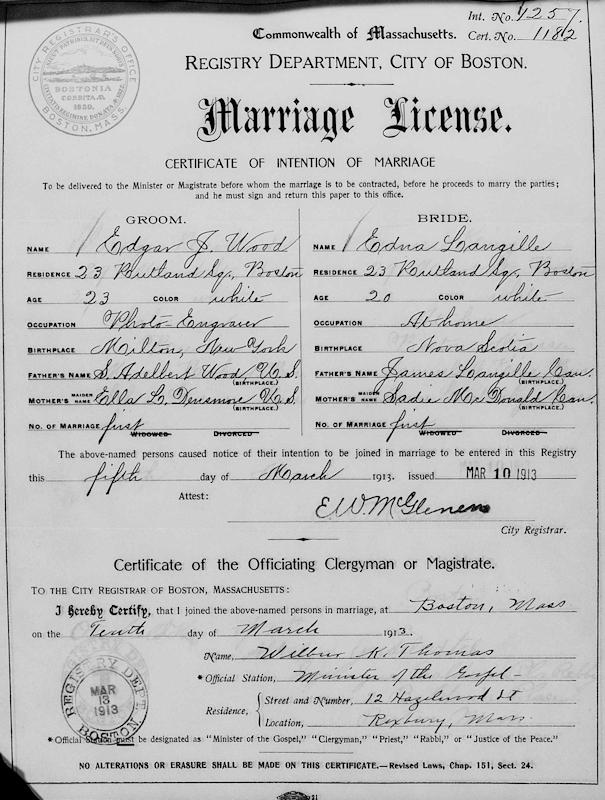 Int. No. 1257.
Commonwealth of Massachusetts. Cert. No. 1182
CITY REGISTRAR'S OFFICE
BOSTONIA
CONDITA A.D.
1630.
BOSTON, MASS.
REGISTRY DEPARTMENT, CITY OF BOSTON.
Marriage License.
CERTIFICATE OF INTENTION OF MARRIAGE
To be delivered to the Minister or Magistrate before whom the marriage is to be contracted, before he proceeds to marry the parties;
and he must sign and return this paper to this office.
GROOM. BRIDE.
NAME Edgar J. Wood NAME Edna Langille
RESIDENCE 23 Rutland Sq., Boston RESIDENCE 23 Rutland Sq., Boston
AGE 23 COLOR white AGE 20 COLOR white
OCCUPATION Photo Engraver OCCUPATION At home
BIRTHPLACE Milton, New York BIRTHPLACE Nova Scotia
FATHER'S NAME S. Adelbert Wood U.S. (BIRTHPLACE.) FATHER'S NAME James Langille Can. (BIRTHPLACE.)
MOTHER'S MAIDEN NAME Ella L. Densmore U.S. (BIRTHPLACE.) MOTHER'S MAIDEN NAME Sadie McDonald Can. (BIRTHPLACE.)
NO. OF MARRIAGE first WIDOWED DIVORCED NO. OF MARRIAGE first WIDOWED DIVORCED
The above-named persons caused notice of their intention to be joined in marriage to be entered in this Registry
this fifth day of March 1913. issued MAR 10 1913
Attest: E.W. McGlenen
City Registrar.
Certificate of the Officiating Clergyman or Magistrate.
TO THE CITY REGISTRAR OF BOSTON, MASSACHUSETTS:
I Hereby Certify, that I joined the above-named persons in marriage, at Boston, Mass
on the Tenth day of March 1913.
Name, Wilbur K. Thomas
*Official Station, Minister of the Gospel
Residence, Street and Number, 12 Hazelwood St
Location, Roxbury, Mass.
REGISTRY DEPT.
MAR
13
1913
BOSTON.
*Official Station must be designated as "Minister of the Gospel," "Clergyman," "Priest," "Rabbi," or "Justice of the Peace."
NO ALTERATIONS OR ERASURE SHALL BE MADE ON THIS CERTIFICATE.—Revised Laws, Chap. 151, Sect. 24.